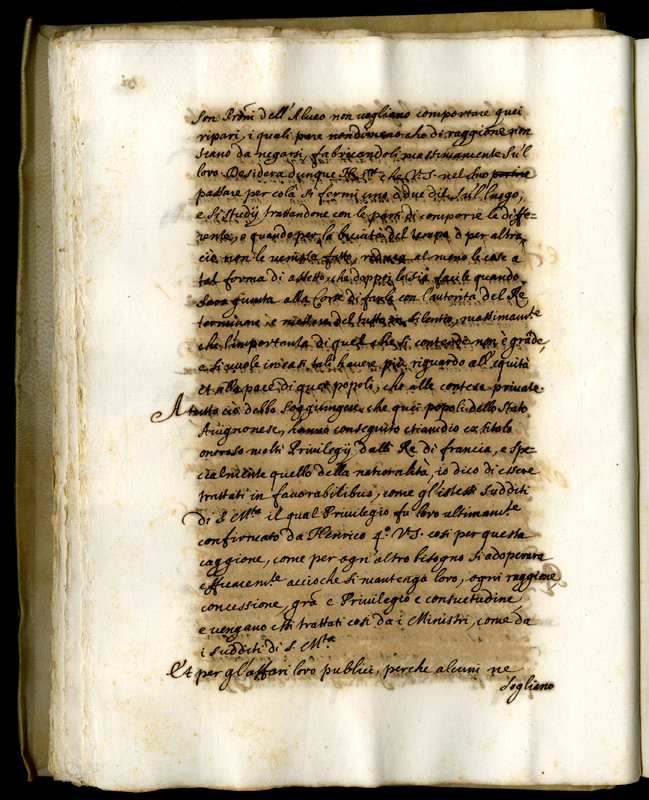 son Pròni dell'Alueo non uogliano comportare quei
ripari, i quali pare nondimeno che di raggione non
siano da negarsi, fabricandoli massimamente sù'l
loro. Desidera dunque che V.S. nel suo
passare per colà si fermi uno ò due dì sul luogo,
e si studij trattandone con le parti di comporre le diffe=
renze, e quando per la breuità del tempo ò per altro
ciò non le uenisse fatto, riduca al meno le cose a
tal forma di assetto, che doppoi le sia facile quando
sarà giunta alla Corte di farle con l'autorità del Re
terminare, e mettere del tutto in silentio, massimamte
che l'importanza di quel che si contende non è grãde,
e si uuole in casi tali hauere più riguardo all'equità
et alla pace di quei popoli, che alle contese priuate.
A tutto ciò debbo soggiungere, che quei popoli dello Stato
Auignonese, hanno conseguito etiamdio ex titolo
oneroso molti Priuilegij dalli Re di francia, e spe=
cialmente quello della nationalità, io dico di essere
trattati in fauorabilibus, come gl'istessi sudditi
di S. Mtà il qual Priuilegio fu loro ultimamte
confirmato da Henrico 4o. V.S. così per questa
caggione, come per ogn'altro bisogno si adoperarà
efficacemte acciòche si mantenga loro, ogni raggione
concessione, grã e Priuilegio e consuetudine,
e uengano essi trattati così da i Ministri, come da
i sudditi di S. Mtà.
Et per gl'affari loro publici, perche alcuni ne
sogliano